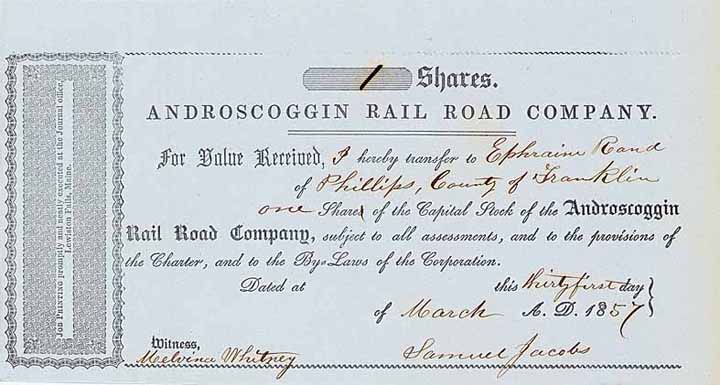 1 Shares.
ANDROSCOGGIN RAIL ROAD COMPANY.
For Value Received, I hereby transfer to Ephraim Rand
of Phillips, County of Franklin
one Share of the Capital Stock of the Androscoggin
Rail Road Company, subject to all assessments, and to the provisions
the Charter, and to the By-Laws of the Corporation.
Dated at this thirty first day
of March A. D. 1857
Witness,
Melvina Whitney
Samuel Jacobs
JOB PRINTING promptly and neatly executed at the Journal office,
Lewiston Falls, Maine.